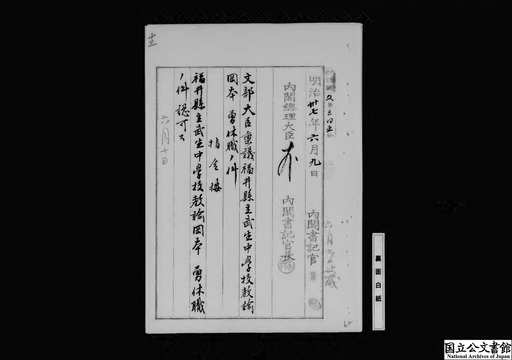 十三
明治卅七年六月九日
内閣書記官
内閣總理大臣
内閣書記官長
文部大臣稟議福井縣立武生中學校教諭
岡本勇休職ノ件
指令按
福井縣立武生中學校教諭岡本勇休職
ノ件認可ス
六月十日
裏面白紙
国立公文書館
National Archives of Japan